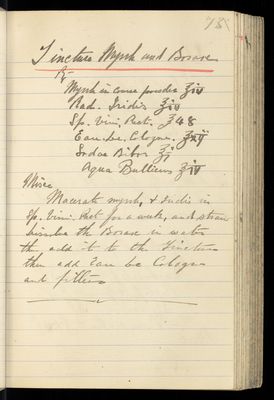 Tincture Myrrh and Borax
℞
Myrrh in coarse powder ℥iv
Rad. Iridis ℥iv
Sp. Vini. Rect. ℥48
Eau. de. Cologne.
Sodae Bibor ℥i
Aqua Bulliens ℥iv
Misce
Macerate myrrh, & iridis in
Sp. Vini. Rect for a week, and strain
dissolve the Borax in water
then add it to the Tincture
then add Eau de Cologne
and filter